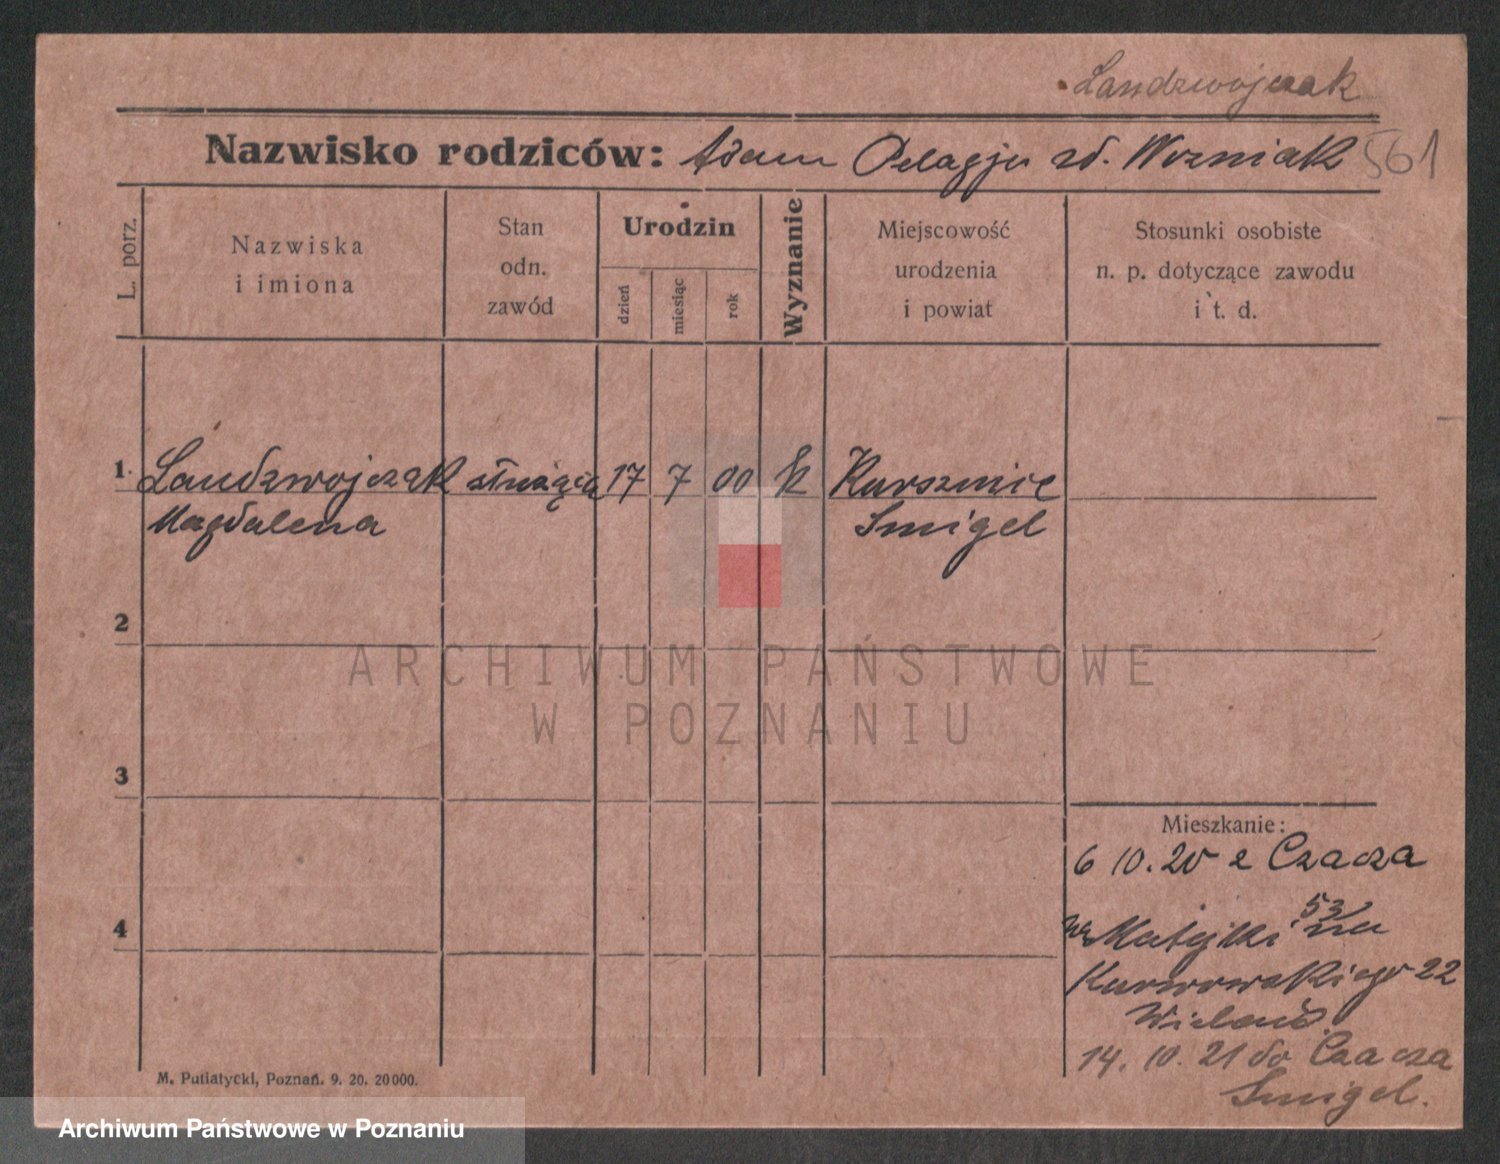 Landzwojczak
Nazwisko rodziców: Adam Pelagja zd. Wozniak 561
L. porz.
Nazwiska
i imiona
Stan
odn.
zawód
Urodzin
dzień
miesiąc
rok
Wyznanie
Miejscowość
urodzenia
i powiat
Stosunki osobiste
n. p. dotyczące zawodu
i t. d.
1. Landzwojczak służąca 17 7 00 k Karszmice
Magdalena Smigel
2
ARCHIWUM PAŃSTWOWE
W POZNANIU
3
Mieszkanie:
6 10. 20 z Czacza
4
53
Matejki na
22
14. 10. 21 do Czacza
Smigel.
M. Putiatycki, Poznań. 9. 20. 20000.
Archiwum Państwowe w Poznaniu